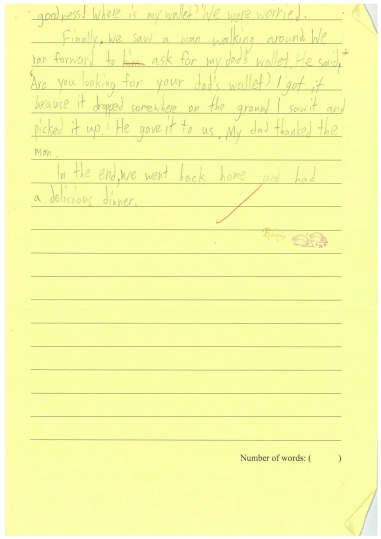 goodness! Where is my wallet? We were worried.
Finally, we saw a man walking around We
ran forward to him ask for my dad's wallet. He said,
"Are you looking for your dad's wallet? I got it
because it dropped somewhere on the ground I saw it and
picked it up." He gave it to us. My dad thanked the
man.
In the end, we went back home and had
a delicious dinner.
Number of words: ( )